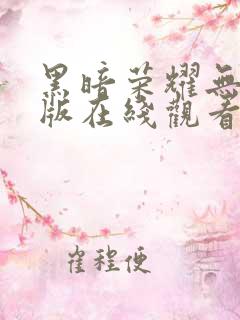 黑暗荣耀無
版在綫觀看
崔程便